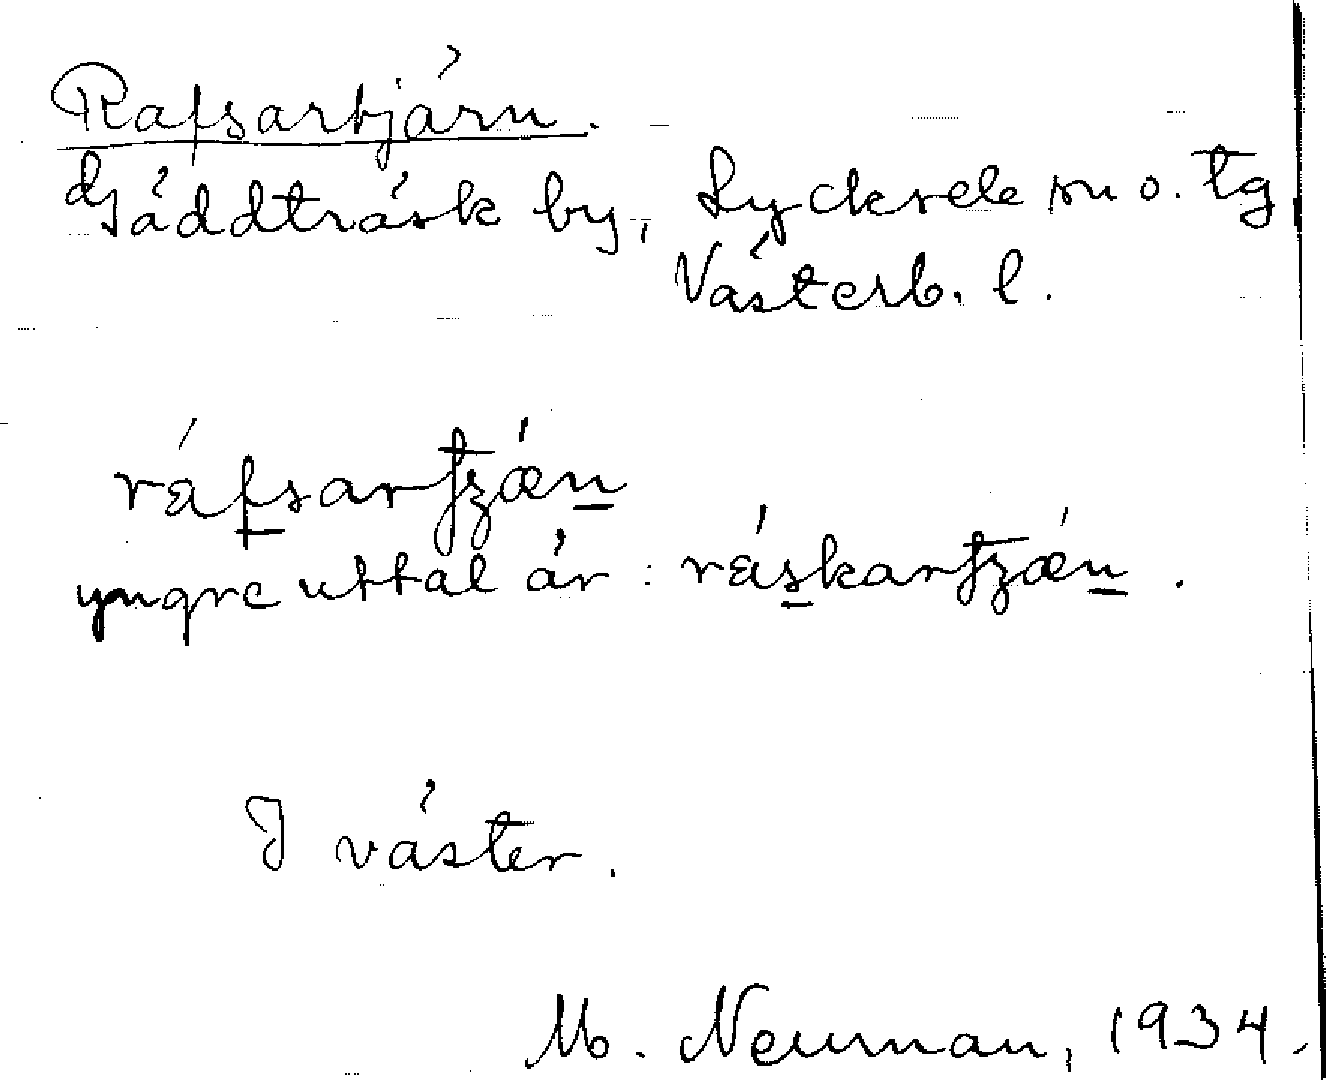 Rafsartjärn.
Gäddträsk by, Lycksele sn o. tg
Västerb. l.
ráfsartʒǽn
yngre uttal är: ráskartʒǽn.
I väster.
M. Neuman, 1934.